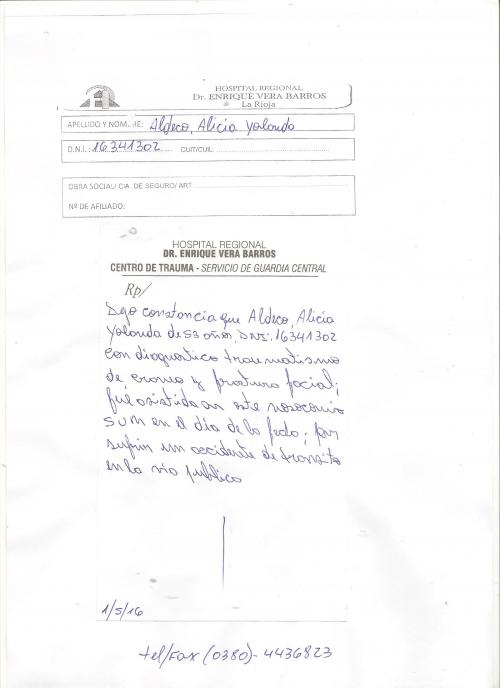 HOSPITAL REGIONAL
Dr. ENRIQUE VERA BARROS
La Rioja
APELLIDO Y NOMBRE: Aldeco, Alicia Yolanda
D.N.I.: 16341302 CUIT/CUIL:
OBRA SOCIAL/ CIA. DE SEGURO/ ART
Nº DE AFILIADO:
HOSPITAL REGIONAL
DR. ENRIQUE VERA BARROS
CENTRO DE TRAUMA - SERVICIO DE GUARDIA CENTRAL
Rp/
Dejo constancia que Aldeco, Alicia
Yolanda de 53 años, DNI: 16341302
con diagnostico traumatismo
de craneo y fractura facial;
fue asistida en este nosocomio
en el día de la fecha; por
sufrir un accidente de transito
en la vía publica
1/5/16
tel/Fax (0380)-4436823